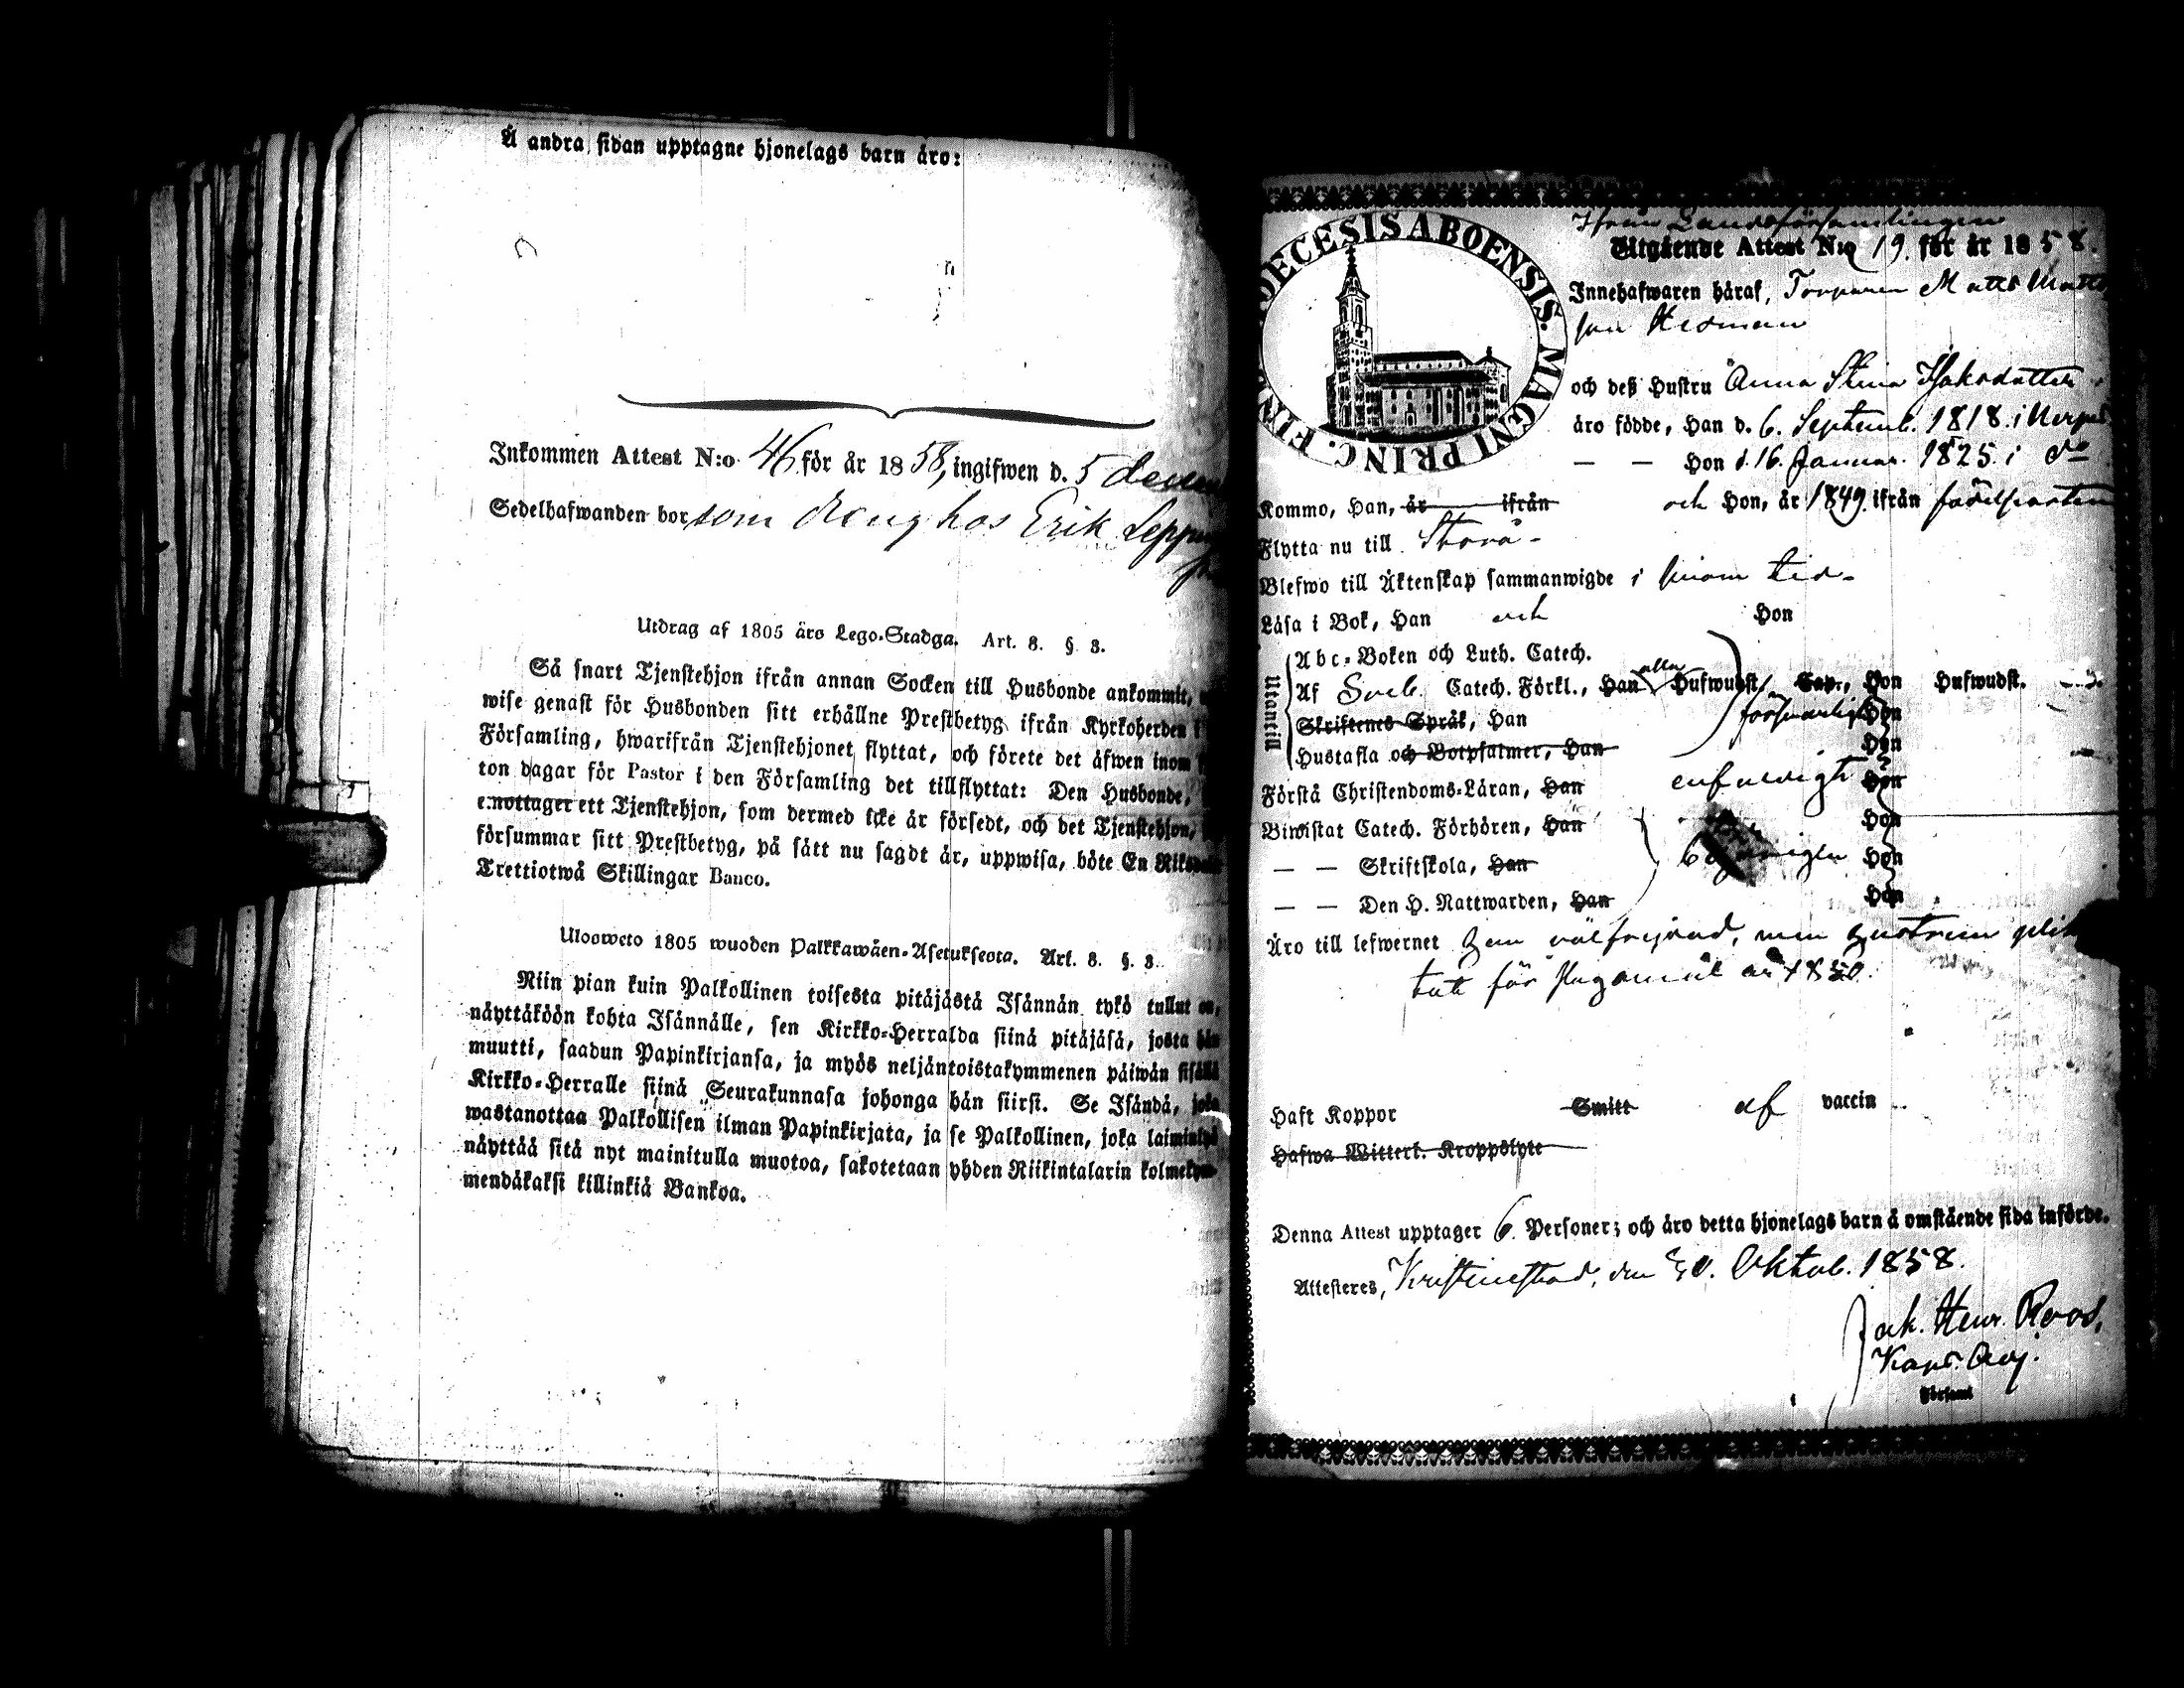 Å andra sidan upptagne hjonelags barn äro:
Inkommen Attest N:o 46 för år 1858, ingifwen d. 5
Sedelhafwanden bor som dreng hos Erik
Utdrag af 1805 års Lego-Stadga. Art. 8. § 3.
Så snart Tjenstehjon ifrån annan Socken till Husbonde ankommit,
wise genast för Husbonden sitt erhållne Prestbetyg ifrån Kyrkoherden i
Församling, hwarifrån Tjenstehjonet flyttat, och förete det äfwen inom
ton dagar för Pastor i den Församling det tillflyttat: Den Husbonde,
emottager ett Tjenstehjon, som dermed icke är försedt, och det Tjenstehjon,
försummar sitt Prestbetyg, på sätt nu sagdt är, uppwisa, böte En
Trettiotwå Skillingar Banco.
Ulosweto 1805 wuoden Palkkawäen-Asetuksesta. Art. 8. §. 3.
Niin pian kuin Palkollinen toisesta pitäjästä Isännän tykö tullut on,
näyttäköön kohta Isännälle, sen Kirkko-Herralda siinä pitäjäsä, josta hän
muutti, saadun Papinkirjansa, ja myös neljäntoistakymmenen päiwän sisällä
Kirkko-Herralle siinä Seurakunnasa johonga hän siirst. Se Isändä, joka
wastanottaa Palkollisen ilman Papinkirjata, ja se Palkollinen, joka laiminlyö
näyttää sitä nyt mainitulla muotoa, sakotetaan yhden Riikintalarin kolmekym-
mendäkaksi killinkiä Bankoa.
DIECESIS ABOENSIS. MAGNI PRINC. FIN
Ifrån Landsförsamlingen
Utgående Attest N:o 19. för år 1858.
Innehafwaren häraf, Torparen Matts Matts
son Hesman
och deß Hustru Anna Stina Isaksdotter
äro födde, Han d. 6. Septemb. 1818. i Nerpes
— — Hon d. 16. Januar. 1825. i do
Kommo, Han, år ifrån och Hon, år 1849. ifrån födelseorten
Flytta nu till Storå.
Blefwo till Äktenskap sammanwigde i sinom tid.
Läsa i Bok, Han och Hon
Utantill
Abc-Boken och Luth. Catech.
Af Sveb. Catech. Förkl., Han alla Hufwudst. Cap., Hon Hufwudst.
Skriftenes Språk, Han försvarligt Hon
Hustafla och Botpsalmer, Han Hon
Förstå Christendoms-Läran, Han enfaldigt Hon
Biwistat Catech. Förhören, Han Hon
— — Skriftskola, Han Hon
— — Den H. Nattwarden, Han Hon
Äro till lefwernet Han välfrejdad, men hustrun plik
tat för år 1850.
Haft Koppor Smitt af vaccin
Hafwa Witterl. Kroppslyte
Denna Attest upptager 6. Personer; och äro detta hjonelags barn å omstående sida införde.
Attesteres, Kristinestad, den 30. Oktob. 1858.
Jak. Henr. Roos,
Kapl. Adj.